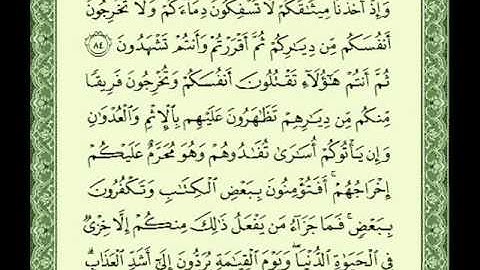 وَإِذْ أَخَذْنَا مِيثَٰقَكُمْ لَا تَسْفِكُونَ دِمَآءَكُمْ وَلَا تُخْرِجُونَ
أَنفُسَكُم مِّن دِيَٰرِكُمْ ثُمَّ أَقْرَرْتُمْ وَأَنتُمْ تَشْهَدُونَ ٨٤
ثُمَّ أَنتُمْ هَٰٓؤُلَآءِ تَقْتُلُونَ أَنفُسَكُمْ وَتُخْرِجُونَ فَرِيقًا
مِّنكُم مِّن دِيَٰرِهِمْ تَظَٰهَرُونَ عَلَيْهِم بِٱلْإِثْمِ وَٱلْعُدْوَٰنِ
وَإِن يَأْتُوكُمْ أُسَٰرَىٰ تُفَٰدُوهُمْ وَهُوَ مُحَرَّمٌ عَلَيْكُمْ
إِخْرَاجُهُمْ ۚ أَفَتُؤْمِنُونَ بِبَعْضِ ٱلْكِتَٰبِ وَتَكْفُرُونَ
بِبَعْضٍ ۚ فَمَا جَزَآءُ مَن يَفْعَلُ ذَٰلِكَ مِنكُمْ إِلَّا خِزْىٌ
فِى ٱلْحَيَوٰةِ ٱلدُّنْيَا ۖ وَيَوْمَ ٱلْقِيَٰمَةِ يُرَدُّونَ إِلَىٰٓ أَشَدِّ ٱلْعَذَابِ ۗ